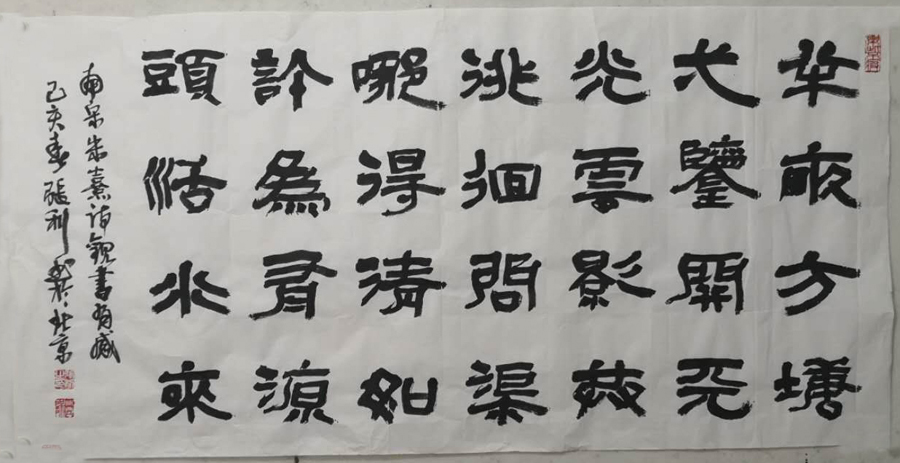 半畝方塘
一鑒開天
光雲影共
徘徊問渠
哪得清如
許為有源
頭活水來
南宋朱熹詩觀書有感
己亥春張利北京